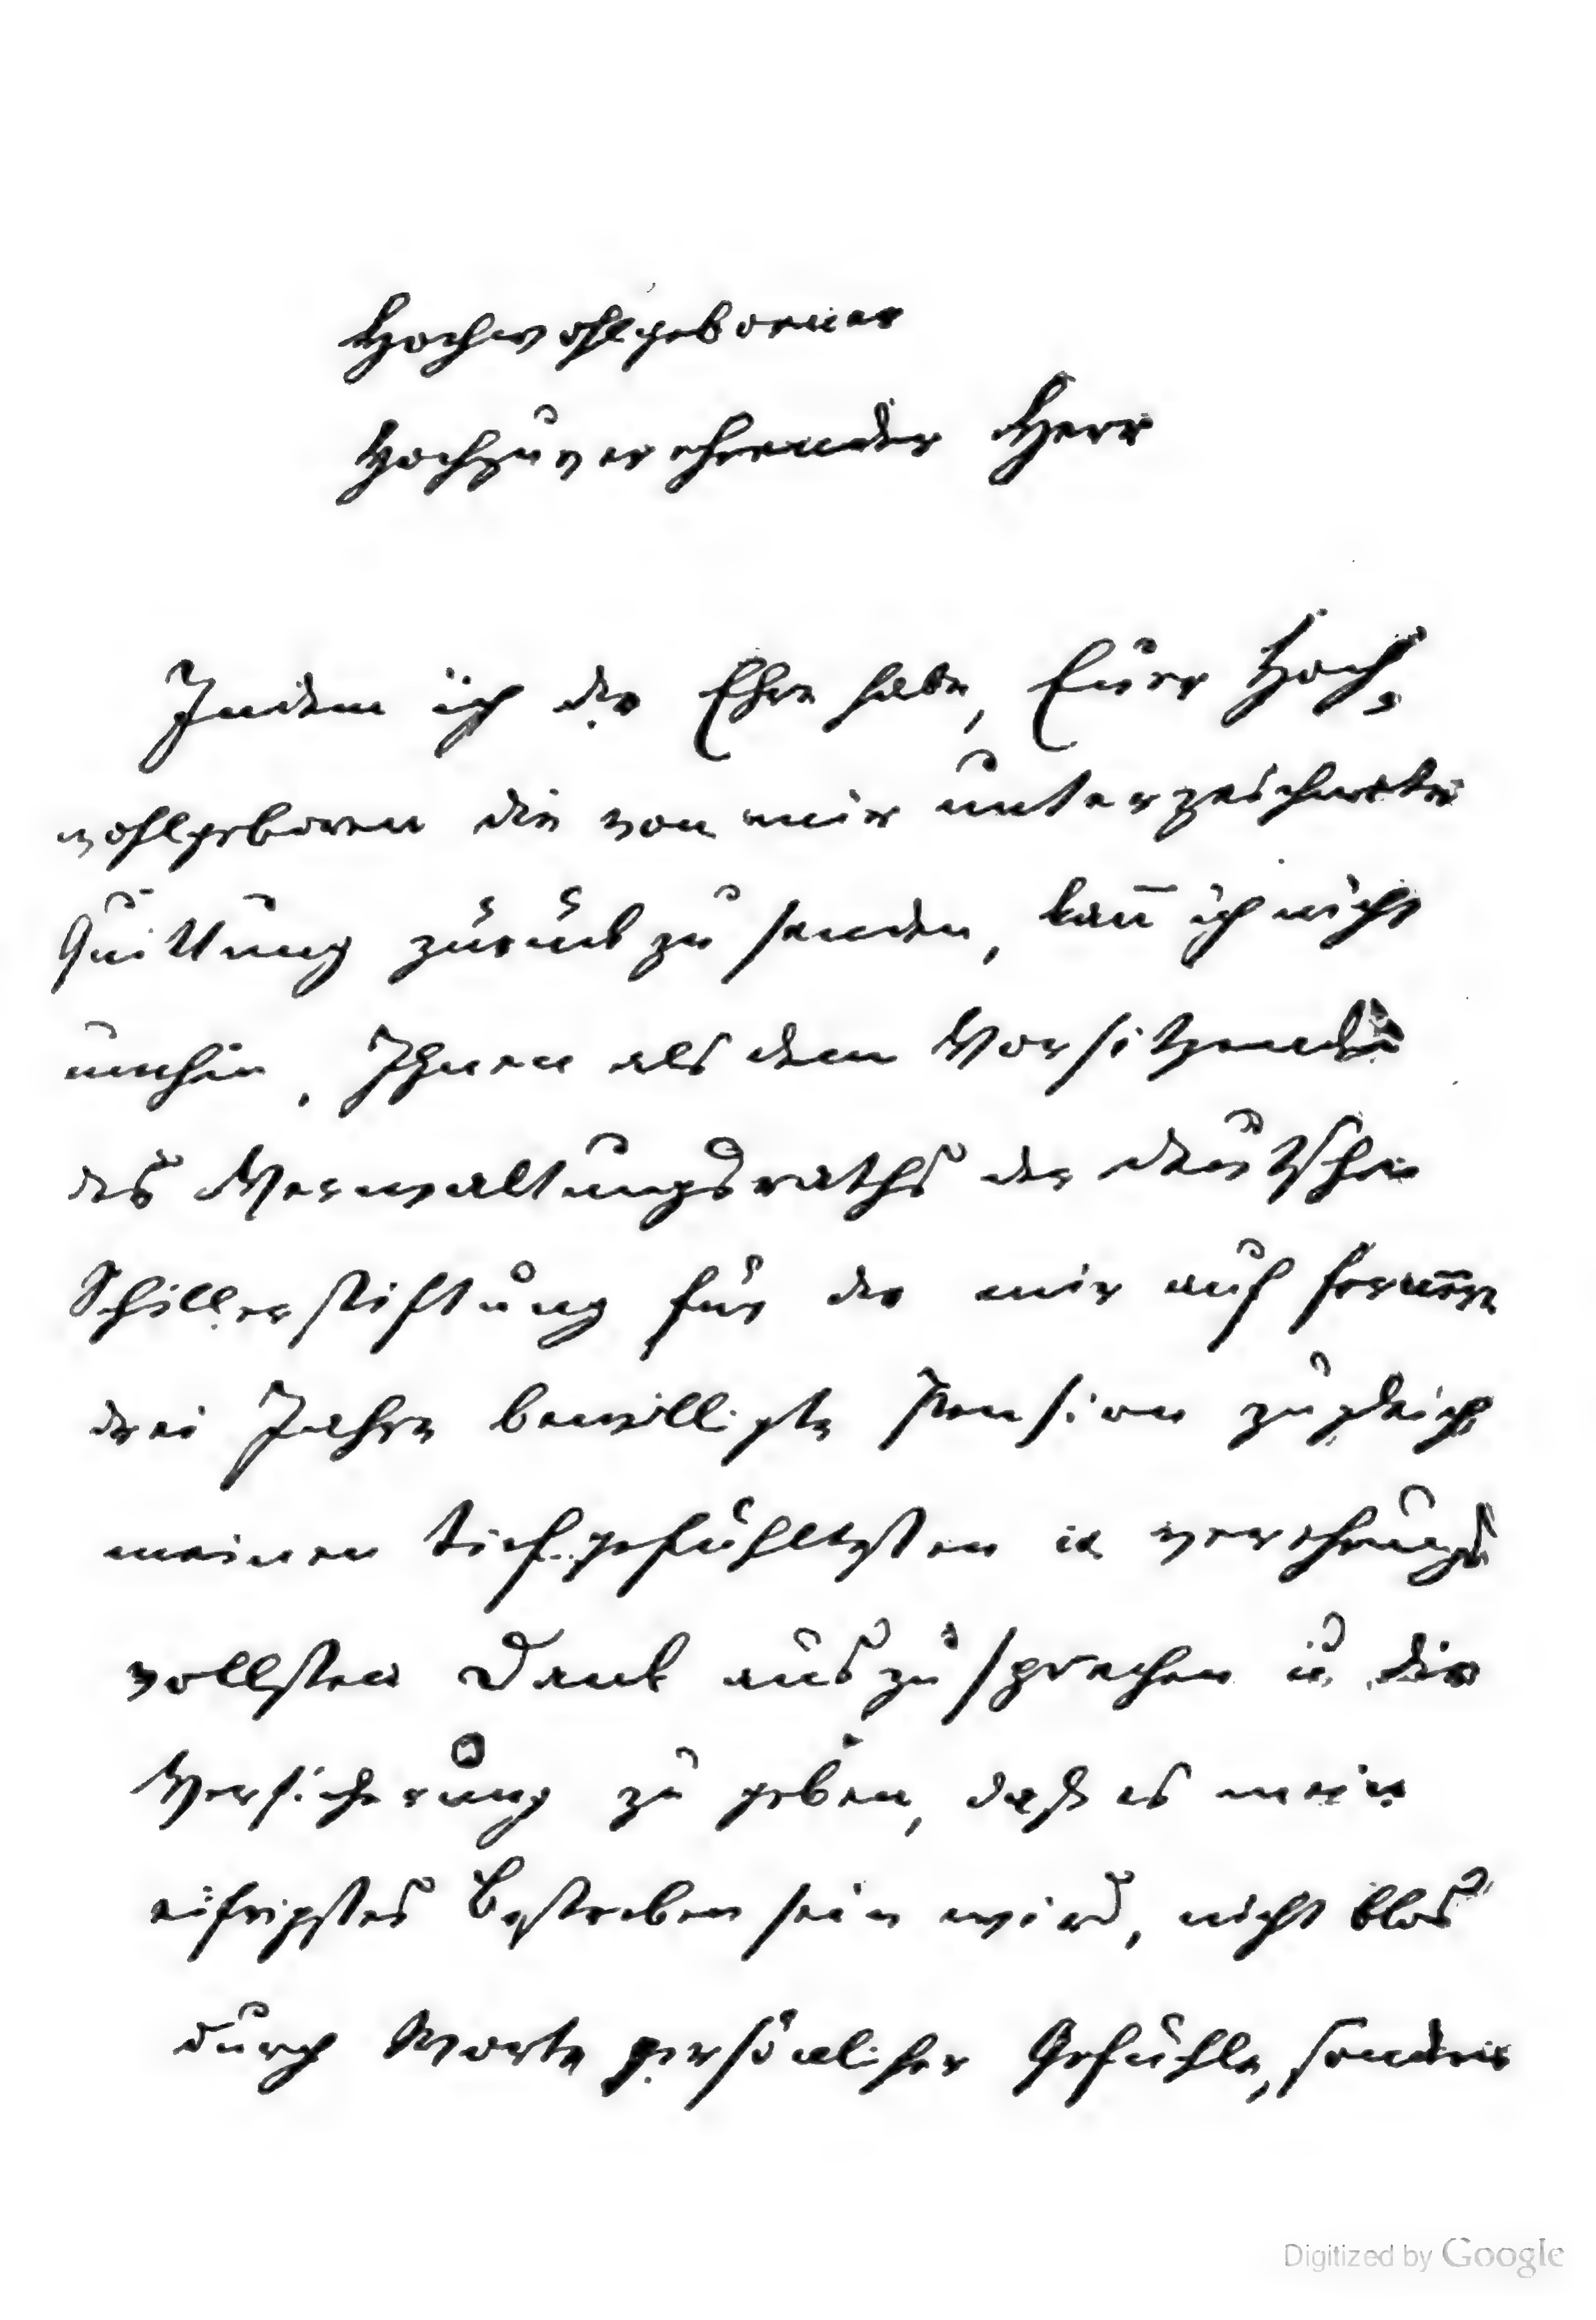 Hochwohlgeborener
Hochzuverehrender Herr
Indem ich die Ehre habe, Eurer Hoch-
wohlgeboren die von mir unterzeichnete
Quittung zurückzusenden, kan̄ ich nicht
umhin, Ihnen als dem Vorsitzenden
des Verwaltungsraths der deutschen
Schillerstiftung für die mir auf fernere
drei Jahre bewilligte Pension zugleich
meinen tiefgefühltesten u verehrungs
vollsten Dank auszusprechen u. die
Versicherung zu geben, daß es mein
eifrigstes Bestreben sein wird, nicht blos
durch Worte persönlicher Gefühle, sondern
Digitized by Google